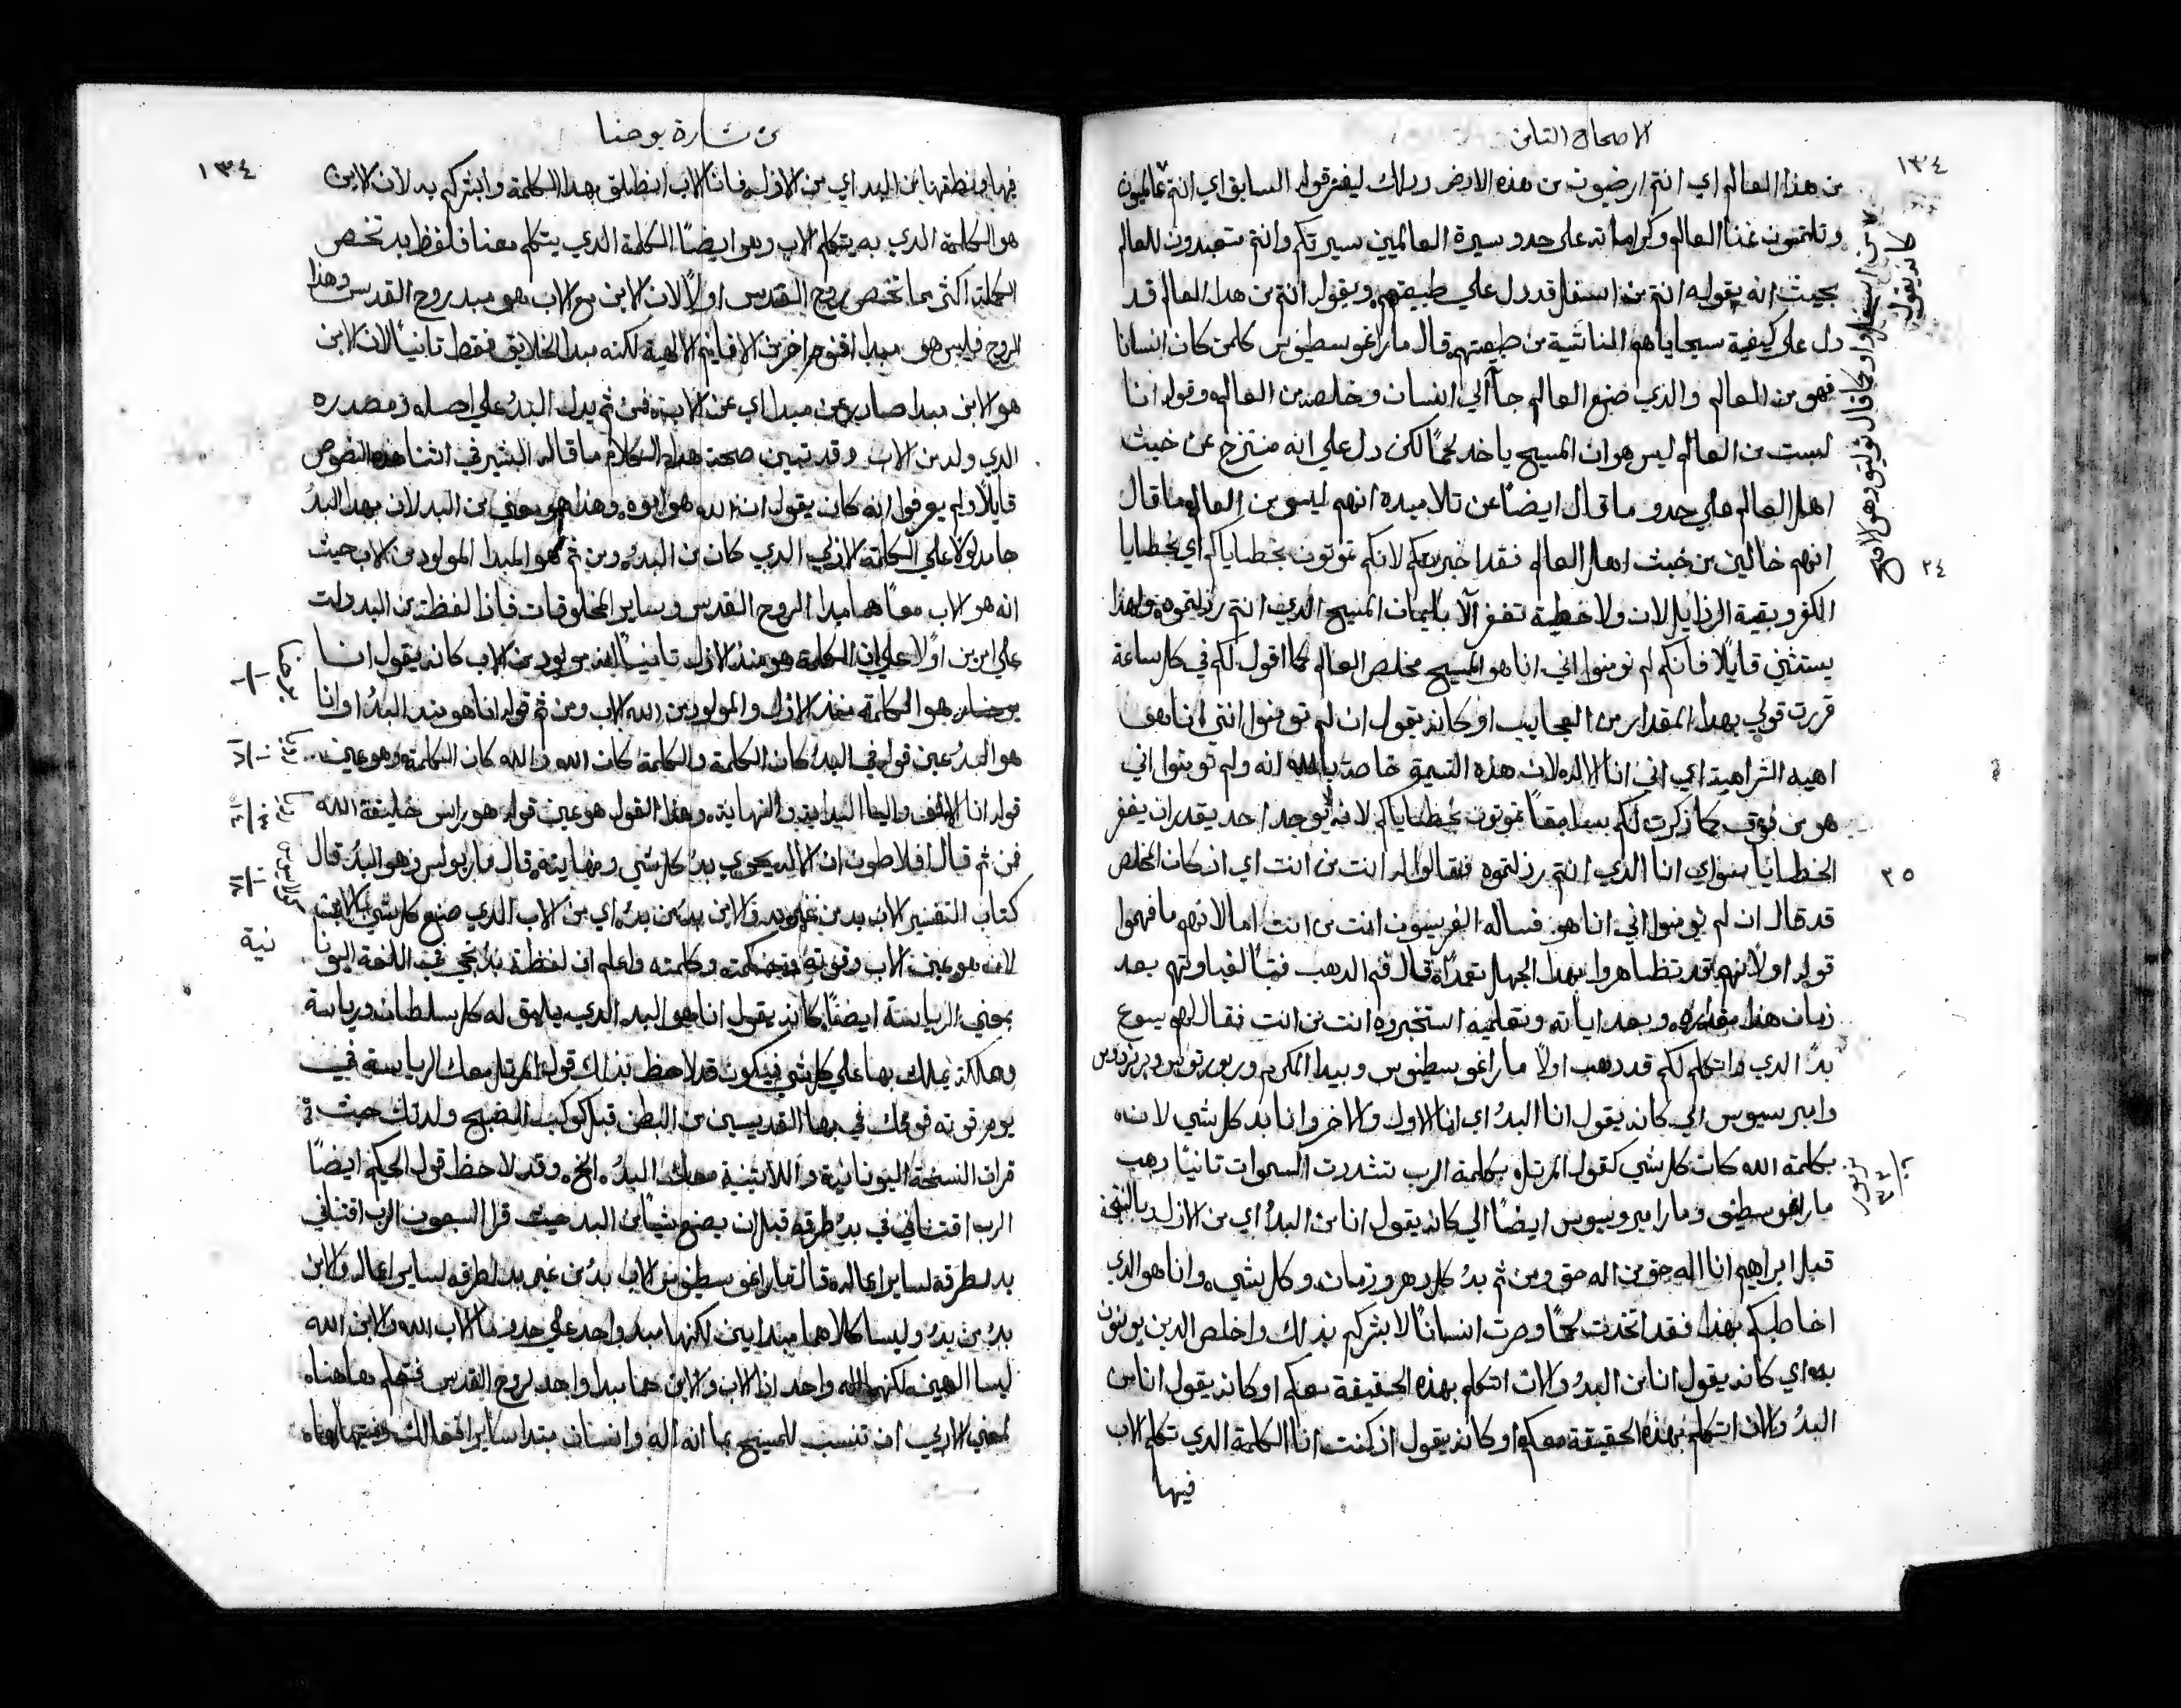 الاصحاح التامن
١٣٤
من هذا العالم اي انتم ارضيون من هذه الارض وذلك ليفسر قوله السابق اي انتم عالميون
وتلتمسون غنا العالم وكراماته على حدو سيرة العالميين سيرتكم وانتم متعبدون للعالم
بحيث انه بقوله انتم من اسفل قد دل علي طبيعتهم وبقوله انتم من هذا العالم قد
دل على كيفية سجاياهم الناشية من طبيعتهم قال مار اغوسطينوس كل من كان انسانا
فهو من العالم والذي صنع العالم جا الي انسان وخلصه من العالم وقوله انا
لست من العالم ليس هو ان المسيح ياخد لحمًا لكن دل علي انه منتزح عن خبث
اهل العالم علي حدو ما قال ايضًا عن تلاميده انهم ليسو من العالم ما قال
انهم خالين من خبث اهل العالم فقد اخبرتكم لانكم تموتون بخطاياكم اي بخطايا
٢٤
الكفر وبقية الرذايل لان ولا خطية تغفر الا بايمان المسيح الذي انتم رذلتموه ولهذا
يستثني قايلًا فانكم لم تومنوا اني انا هو المسيح مخلص العالم كما اقول لكم في كل ساعة
قررت قولي بهذا المقدار من العجايب او كانه يقول ان لم تومنوا انني انا هو
اهيه اشراهيه اي اني انا الاله لان هذه التسمية خاصة بالله انه ولم تومنوا اني
هو من فوق كما ذكرت لكم سابقًا تموتون بخطاياكم لانه لا يوجد احد يقدر ان يغفر
الخطايا سواي انا الذي انتم رذلتموه فقالوا له انت من انت اي ان كان المخلص
٢٥
قد قال ان لم تومنوا اني انا هو فساله الفريسيون انت من انت اما لانهم ما فهموا
قوله اولًا لانهم قد تظاهروا بهذا الجهل تعمدًا قال فم الدهب فتبًا لغباوتهم بعد
زمان هذا مقداره وبعد اياته وتعليمه استخبروه انت من انت فقال لهم يسوع
بدُ الذي واتكلم لكم قد دهب اولًا مار اغوسطينوس وبيدا المكرم
وامبروسيوس الي كانه يقول انا البدُ اي انا الاول والاخر وانا بد كل شي لانه
بكلمة الله كانت كل شي كقول المرتل وبكلمة الرب تشددت السموات تانيًا دهب
زبور
٣٢
مار اغوسطينوس ومار امبروسيوس ايضًا الي كانه يقول انا من البدُ اي من الازل
قبل ابراهيم انا اله حق من اله حق ومن ثم بدُ كل دهر وزمان وكل شي وانا هو الذي
اخاطبكم بهذا فقد اتخذت لحمًا وصرت انسانًا لابشركم بذلك واخلص الدين يومنون
به اي كانه يقول انا من البدُ والان اتكلم بهذه الحقيقة معكم او كانه يقول انا من
البدُ والان اتكلم بهذه الحقيقة معكم او كانه يقول اذ كنت انا الكلمة الدي تكلم الاب
فيها
من بشارة يوحنا
١٣٤
فيها ونطقها من البد اي من الاول فانا الان انطلق بهذا الكلمة وابشركم به لان الابن
هو الكلمة الدي به يتكلم الاب وهو ايضًا الكلمة الدي يتكلم معنا فلفظ بد تخص
الكلمة اكثر مما تختص بروح القدس اولًا لان الابن مع الاب هو مبد روح القدس وهذا
الروح فليس هو مبدا اقنوم اخر من الاقانيم الالهية لكنه مبدا الخلايق فقط تانيًا لان الابن
هو الابن مبدا صادر عن مبدا اي عن الاب فمن ثم يدل البدُ علي اصله ومصدره
الدي ولد من الاب وقد تبين صحة هذا الكلام ما قاله البشير في اثنا هذه النصوص
قايلًا ولم يعرفوا انه كان يقول ان الله هو ابوه وهذا هو معني من البد لان بهذا البدُ
جا مدلولًا علي الكلمة الازلي الدي كان من البدُ ومن ثم هو المبدا المولود من الاب حيث
انه هو الاب معًا هما مبدا الروح القدس وساير المخلوقات فاذًا لفظة من البد دلت
علي امرين اولًا علي ان الكلمة هو منذ الازل تانيًا انه مولود من الاب كانه يقول انا
يوحنا
١
هو الكلمة منذ الازل والمولود من الله الاب ومن ثم قوله انا هو منذ البدُ او انا
هو البدُ عين قوله في البدُ كان الكلمة والكلمة كان الله كان الكلمة وهو عين
قوله انا الالف واليا البداية والنهاية وهذا القول هو عين قوله هو راس خليقة الله
فمن ثم قال افلاطون ان الاله يحوي بدُ كل شي ونهايته قال مار بولس وهو البدُ قال
كتاب التفسير الاب بد من غير بد والابن بد من بدُ اي من الاب الدي صنع كل شي بالابن
لانه هو عين الاب وقوته وحكمته وكلمته واعلم ان لفظة بدُ تجي في اللغة اليونا
نية
بمعني الرياسة ايضًا كانه يقول انا هو البد الدي يليق له كل سلطان ورياسة
ومملكة يملك بها علي كل شي فيكون قد لاحظ بذلك قول المرتل معك الرياسة في
يوم قوته قوتك في بها القديسين من البطن قبل كوكب الصبح ولدتك حيث
قرات النسخة اليونانية واللاتينية معك البدُ الخ وقد لاحظ قول الحكيم ايضًا
الرب اقتناني في بدُ طرقه قبل ان يصنع شيًا من البد حيث قرا السبعون الرب اقتناني
بد لطرقه لساير اعماله قال مار اغوسطينوس الاب بدُ من غير بد لطرقه لساير اعماله والابن
بدُ من بدُ وليسا كلاهما مبدايين لكنهما مبد واحد علي حدو ما الاب الله والابن الله
ليسا الهين لكنهما اله واحد اذًا الاب والابن هما مبدا واحد لروح القدس
لمعني الازلي ان تنسب للمسيح بما انه اله وانسان مبتدا ساير افعالك